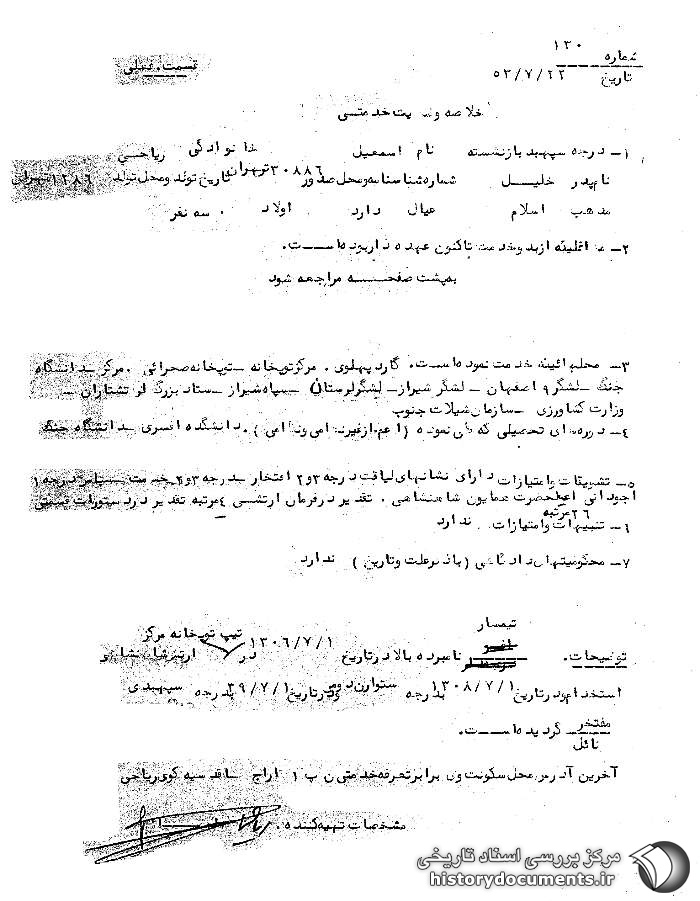 ۱۳۰
شماره
تاریخ ۵۳/۷/۲۲
خلاصه وضعیت خدمتی
۱- درجه سپهبد بازنشسته نام اسمعیل خانوادگی ریاحی
نام پدر خلیل شماره شناسنامه و محل صدور ۳۰۸۸۶ تهران تاریخ تولد و محل تولد ۱۲۸۶ تهران
مذهب اسلام عیال دارد اولاد سه نفر
۲- مشاغلیکه از بدو خدمت تاکنون عهده دار بوده است.
به پشت صفحه مراجعه شود
۳- محلهائیکه خدمت نموده است. گارد پهلوی. مرکز توپخانه - توپخانه صحرائی. مرکز - دانشگاه
جنگ - لشگر ۹ اصفهان - لشگر شیراز - لشگر لرستان - سپاه شیراز - ستاد بزرگ ارتشتاران -
وزارت کشاورزی - سازمان شیلات جنوب
۴- دوره‌های تحصیلی که طی نموده (اعم از غیرنظامی و نظامی). دانشکده افسری - دانشگاه جنگ
۵- تشویقات و امتیازات دارای نشانهای لیاقت درجه ۳و۲ افتخار درجه ۳و۲ خدمت درجه ۱
آجودانی اعلیحضرت همایون شاهنشاهی. تقدیر در فرمان ارتشی ۴ مرتبه تقدیر در دستورات قسمتی
۲۶ مرتبه
۶- تنبیهات و امتیازات. ندارد
۷- محکومیتهای دادگاهی (با ذکر علت و تاریخ) ندارد
تیمسار
توضیحات. نامبرده بالا در تاریخ ۱۳۰۶/۷/۱ در تیپ توپخانه مرکز
استخدام و در تاریخ ۱۳۰۸/۷/۱ بدرجه ستوان دومی و در تاریخ ۳۹/۷/۱ بدرجه سپهبدی
مفتخر
نائل
گردیده است.
آخرین آدرس محل سکونت وی برابر تعرفه خدمتی اراج کوی ریاحی
مشخصات تهیه کننده.
مرکز بررسی اسناد تاریخی
historydocuments.ir